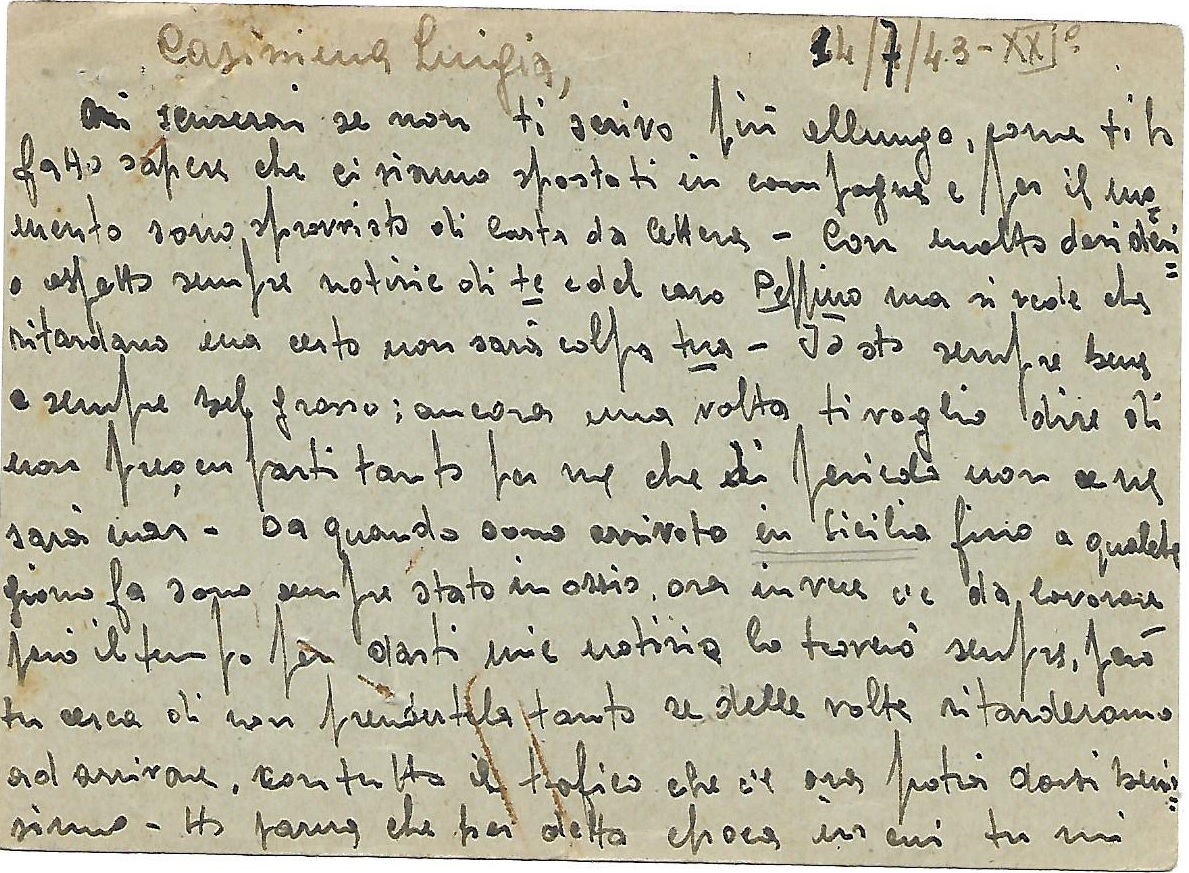 Carissima Luigia, 14/7/43-XXI°
Mi scuserai se non ti scrivo più allungo, come ti ho
fatto sapere che ci siamo spostati in campagna e per il mo=
mento sono sprovvisto di carta da lettera - Con molto desideri=
o aspetto sempre notizie di te e del caro Peppino ma si vede che
ritardano ma certo non sarà colpa tua - Io sto sempre bene
e sempre bel grasso; ancora una volta ti voglio dire di
non preocuparti tanto per me che di pericolo non ce ne
sarà mai - Da quando sono arrivato in Sicilia fino a qualche
giorno fa sono sempre stato in ozio, ora invece c'è da lavorare
però il tempo per darti mie notizie lo troverò sempre, però
tu cerca di non prendertela tanto se delle volte ritarderanno
ad arrivare, con tutto il trafico che c'è ora potrà darsi benis=
simo - Ho paura che per detta epoca in cui tu mi